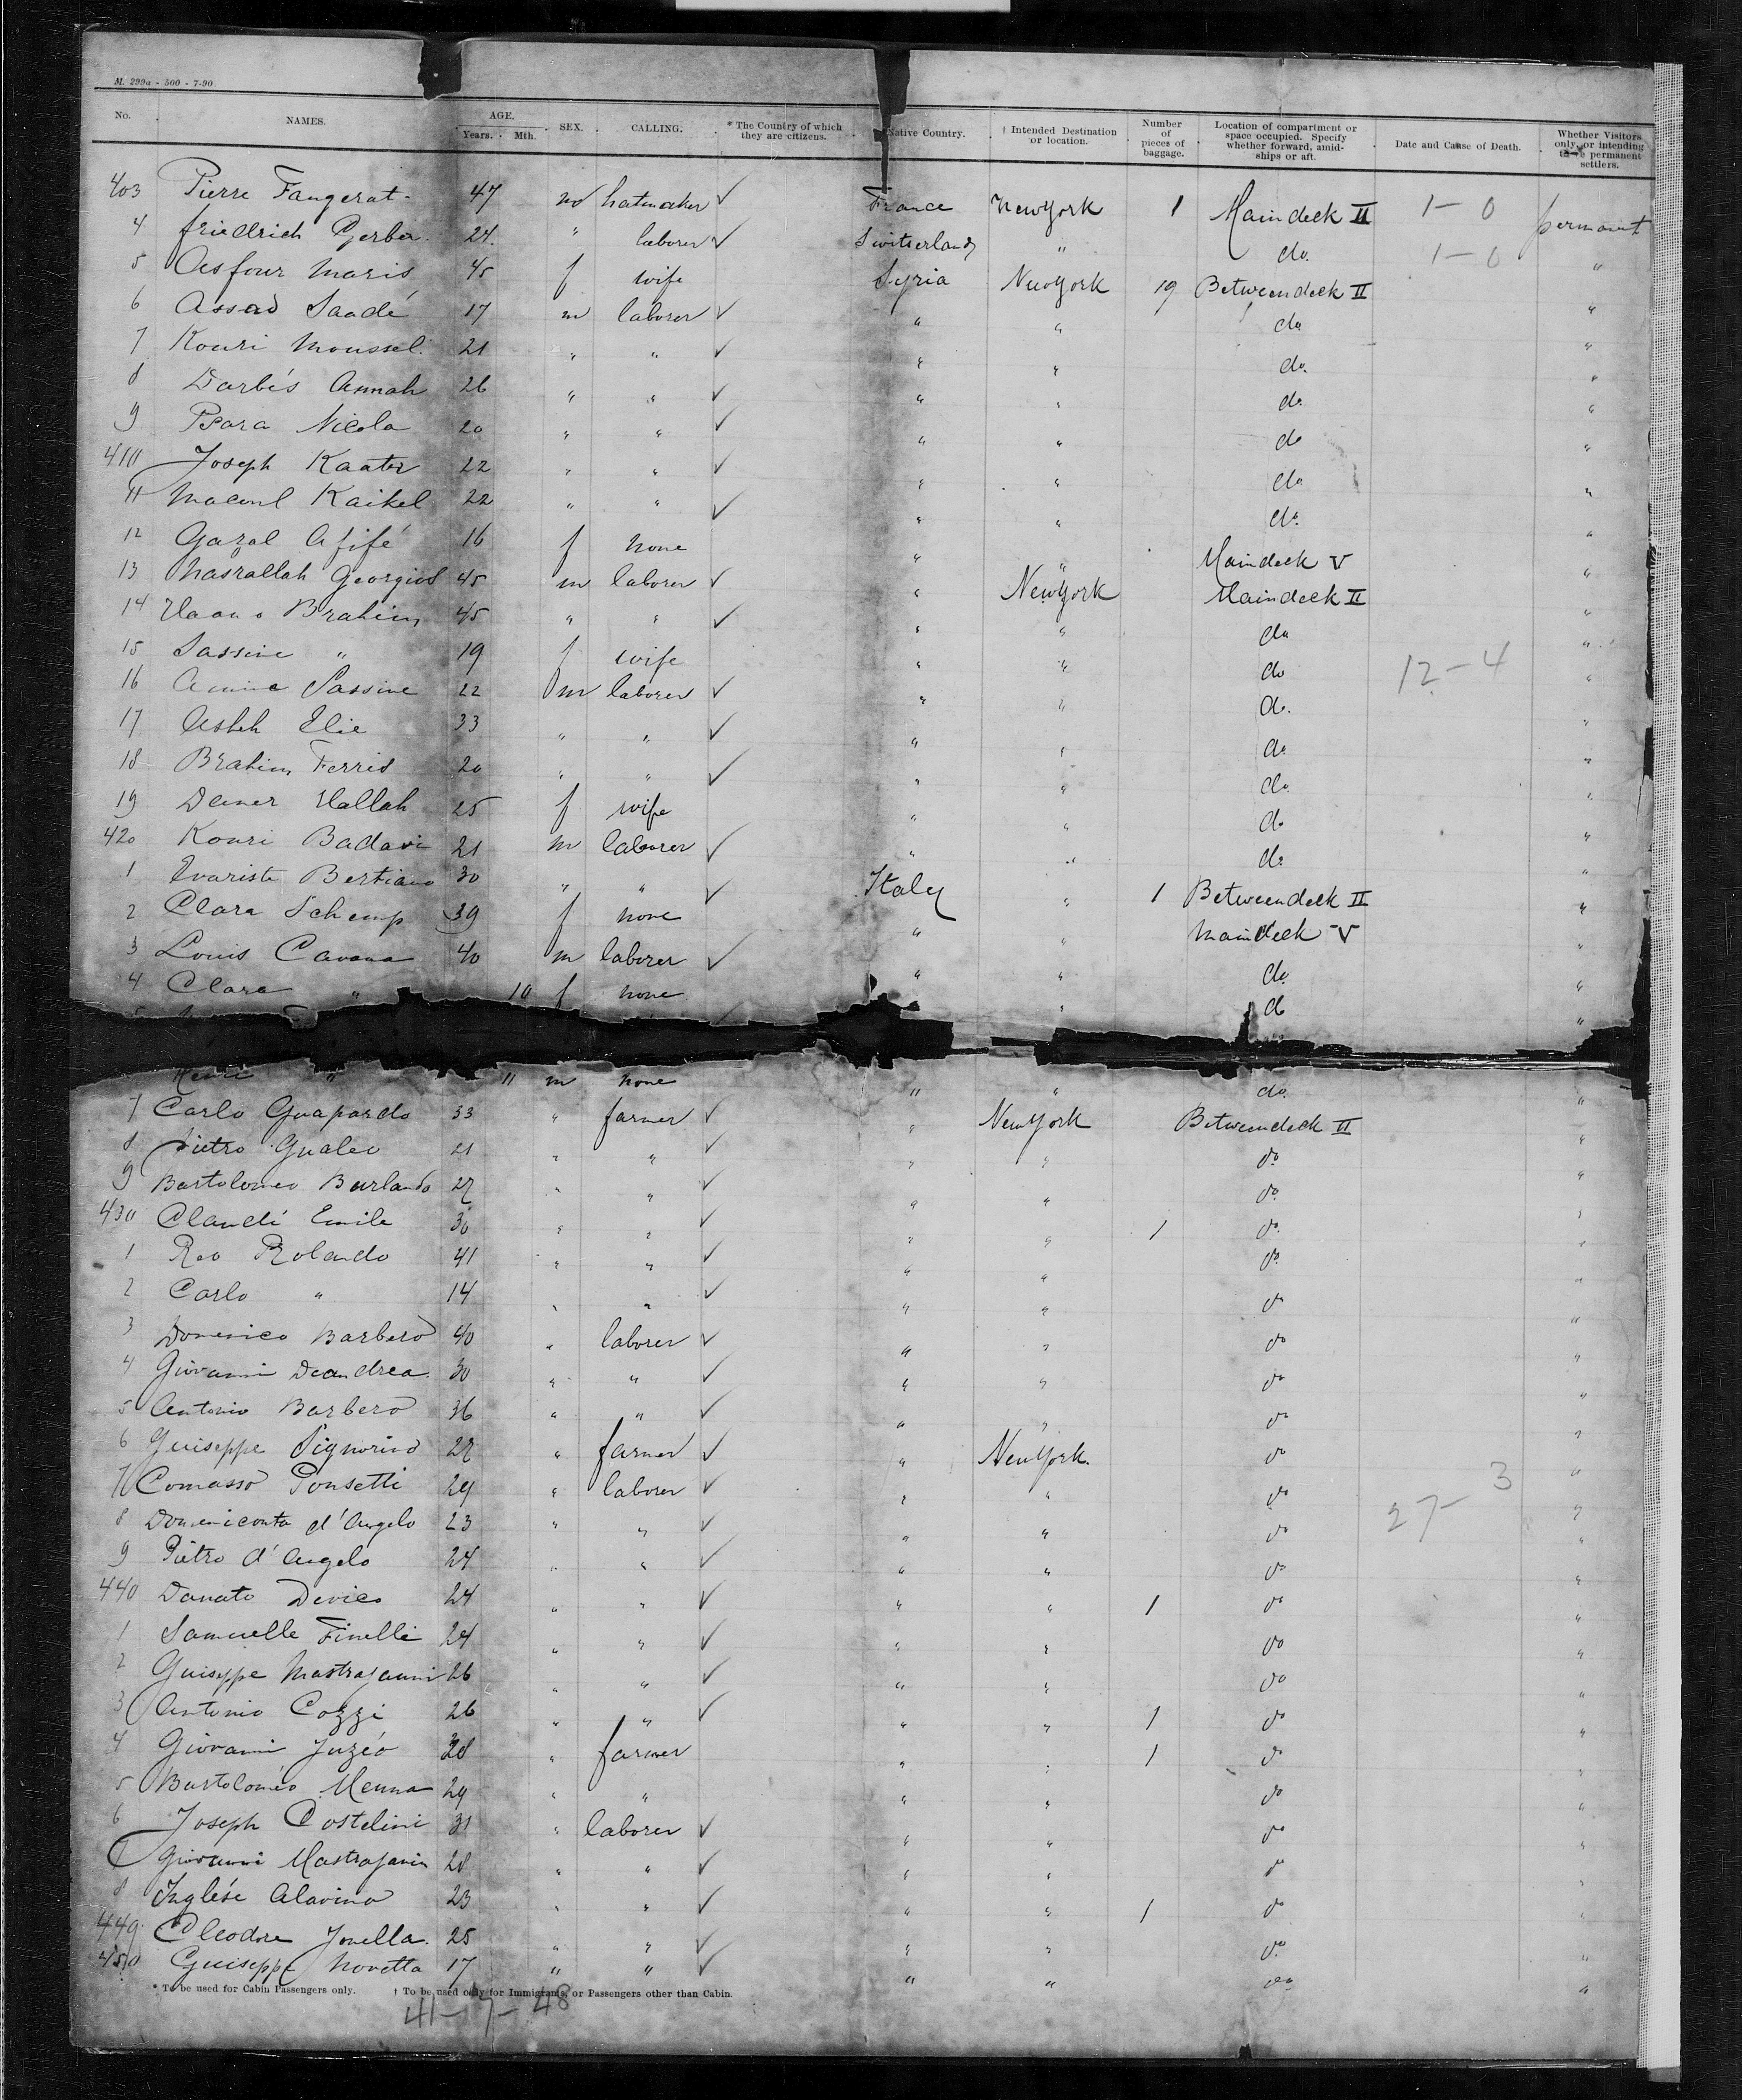 M. 299a - 500 - 7-90
No. NAMES. AGE. Years. Mth. SEX. CALLING. * The Country of which they are citizens. Native Country. † Intended Destination or location. Number of pieces of baggage. Location of compartment or space occupied. Specify whether forward, amidships or aft. Date and Cause of Death. Whether Visitors only, or intending to be permanent settlers.
403 Pierre Faugerat 47 m hatmaker ✓ France New York 1 Maindeck II 1-0 permanent
4 Friedrich Gerber 24 " laborer ✓ Switserland " do. 1-0 "
5 Asfour Maris 45 f wife Syria New York 19 Betweendeck II "
6 Assad Saadé 17 m laborer ✓ " " do. "
7 Kouri Moussel 21 " " ✓ " " do. "
8 Darbés Annah 26 " " ✓ " " do. "
9 Psara Nicola 20 " " ✓ " " do "
410 Joseph Kaater 22 " " ✓ " " do "
11 Kaikel 22 " " ✓ " " do. "
12 Gazal Afifé 16 f none " " Maindeck V "
13 Nasrallah Georgios 45 m laborer ✓ " New York Maindeck II "
14 Brahim 45 " " ✓ " " do "
15 Sassine " 19 f wife " " do 12-4 "
16 Amine Sassine 22 m laborer ✓ " " do. "
17 Elie 33 " " ✓ " " do. "
18 Brahim Ferris 20 " " ✓ " " do. "
19 Hallah 25 f wife " " do "
420 Kouri Badavi 21 m laborer ✓ " " do. "
1 Evariste Bertiano 30 " " ✓ Italy " 1 Betweendeck II "
2 Clara Schemp 39 f none " " Maindeck V "
3 Louis Cavana 40 m laborer ✓ " " do. "
4 Clara " 10 f none " " do "
Henri " 11 m none " " do. "
7 Carlo Guapardo 33 " farmer ✓ " New York Betweendeck II "
8 Pietro Gualeo 21 " " ✓ " " do "
9 Bartolomeo Burlando 27 " " ✓ " " do "
430 Claudé Emile 30 " " ✓ " " 1 do. "
1 Reo Rolando 41 " " ✓ " " do "
2 Carlo " 14 " " ✓ " " do "
3 Domenico Barbero 40 " laborer ✓ " " do "
4 Giovanni Deandrea 30 " " ✓ " " do "
5 Antonio Barbero 36 " " ✓ " " do "
6 Guiseppe Signorino 27 " farmer ✓ " New York. do "
7 Comasso Ponsetti 29 " laborer ✓ " " do 27-3 "
8 Domeniconta d'Angelo 23 " " ✓ " " do "
9 Pietro d'Angelo 24 " " ✓ " " do "
440 Donato Devico 24 " " ✓ " " 1 do "
1 Samuelle Finelli 24 " " ✓ " " do "
2 Guiseppe Mastrojanni 26 " " ✓ " " do "
3 Antonio Cozzi 26 " " ✓ " " 1 do "
4 Giovanni Juzéo 28 " farmer " " 1 do "
5 Bartoloméo Menna 29 " " " " do "
6 Joseph Costelini 31 " laborer ✓ " " do "
7 Giovanni Mastrojanin 28 " " ✓ " " do "
8 Inglése Alavino 23 " " ✓ " " 1 do "
449 Cleodore Jonella. 25 " " ✓ " " do "
450 Guiseppe Novetta 17 " " ✓ " " do "
* To be used for Cabin Passengers only. † To be used only for Immigrants, or Passengers other than Cabin.
41-7-48